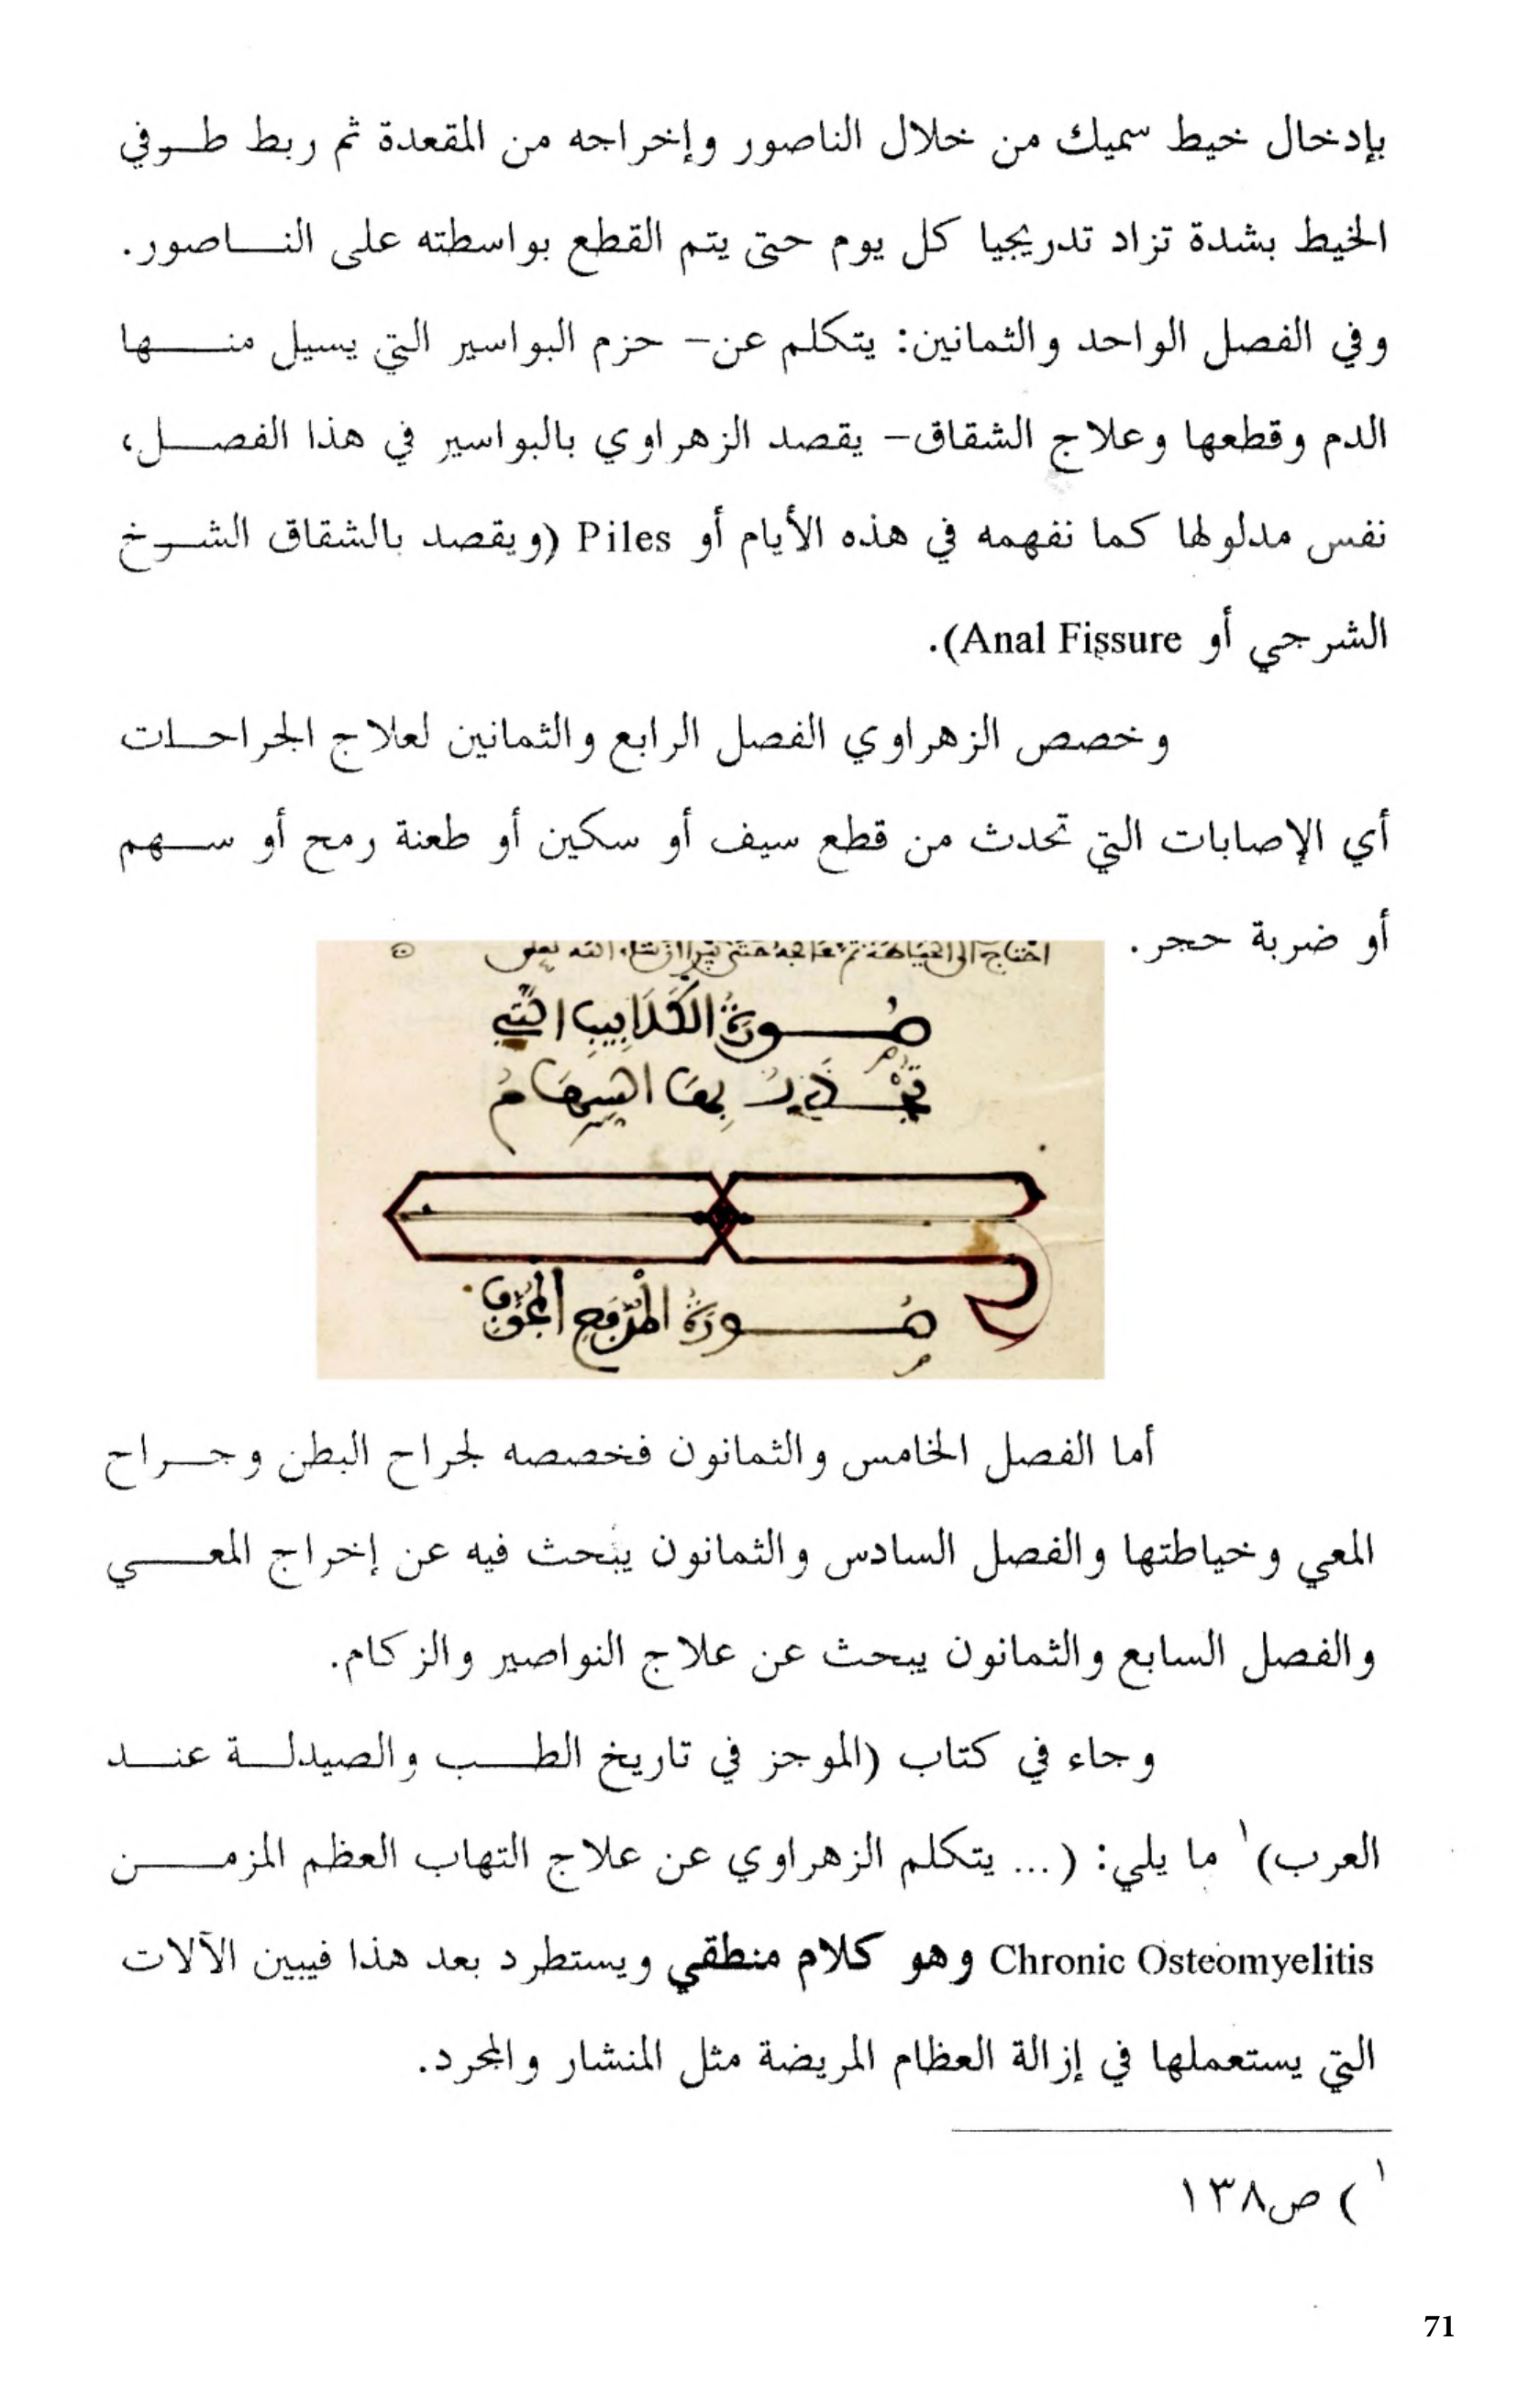 بإدخال خيط سميك من خلال الناصور وإخراجه من المقعدة ثم ربط طرفي
الخيط بشدة تزاد تدريجيا كل يوم حتى يتم القطع بواسطته على الناصور.
وفي الفصل الواحد والثمانين: يتكلم عن– حزم البواسير التي يسيل منها
الدم وقطعها وعلاج الشقاق– يقصد الزهراوي بالبواسير في هذا الفصل،
نفس مدلولها كما نفهمه في هذه الأيام أو Piles (ويقصد بالشقاق الشرخ
الشرجي أو Anal Fissure).
وخصص الزهراوي الفصل الرابع والثمانين لعلاج الجراحات
أي الإصابات التي تحدث من قطع سيف أو سكين أو طعنة رمح أو سهم
أو ضربة حجر.
صُورَةُ الكَلَالِيبِ التي
بها السهام
صُورَةُ المدفع المجوف
أما الفصل الخامس والثمانون فخصصه لجراح البطن وجراح
المعي وخياطتها والفصل السادس والثمانون يبحث فيه عن إخراج المعي
والفصل السابع والثمانون يبحث عن علاج النواصير والزكام.
وجاء في كتاب (الموجز في تاريخ الطب والصيدلة عند
العرب)١ ما يلي: (... يتكلم الزهراوي عن علاج التهاب العظم المزمن
Chronic Osteomyelitis وهو كلام منطقي ويستطرد بعد هذا فيبين الآلات
التي يستعملها في إزالة العظام المريضة مثل المنشار والمجرد.
١ ) ص١٣٨
71